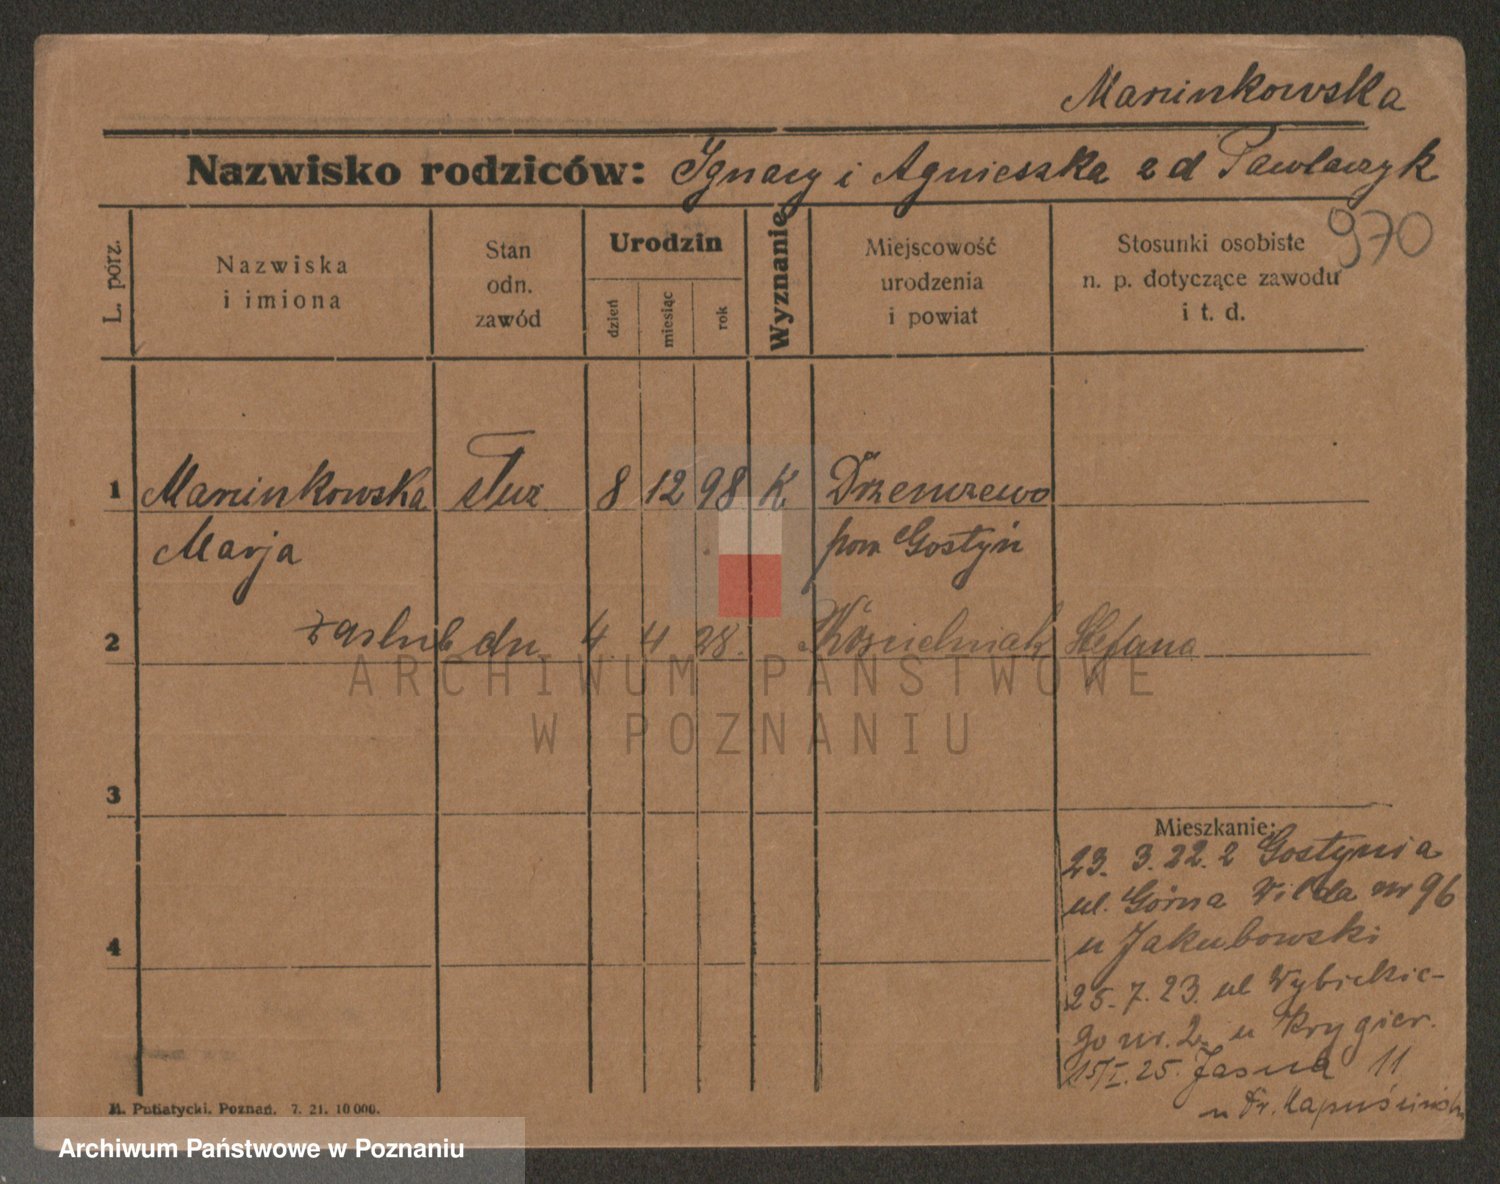 Marcinkowska
Nazwisko rodziców: Ignacy i Agnieszka z d Pawlaczyk
970
L. porz.
Nazwiska
i imiona
Stan
odn.
zawód
Urodzin
dzień
miesiąc
rok
Wyznanie
Miejscowość
urodzenia
i powiat
Stosunki osobiste
n. p. dotyczące zawodu
i t. d.
1 Marcinkowska służ 8 12 98 K Drzenczewo
Marja pow Gostyń
2 zaślub dn 4. 4 28. Kościelniak Stefana
3
Mieszkanie:
23. 3. 22. z Gostynia
ul. Górna Wilda nr 96
4
u Jakubowski
25. 7. 23. ul Wybickie-
go nr. 2. u Krygier.
15/I. 25. Jasna 11
u Fr. Kapuścińsk
M. Putiatycki, Poznań. 7. 21. 10 000.
ARCHIWUM PAŃSTWOWE
W POZNANIU
Archiwum Państwowe w Poznaniu